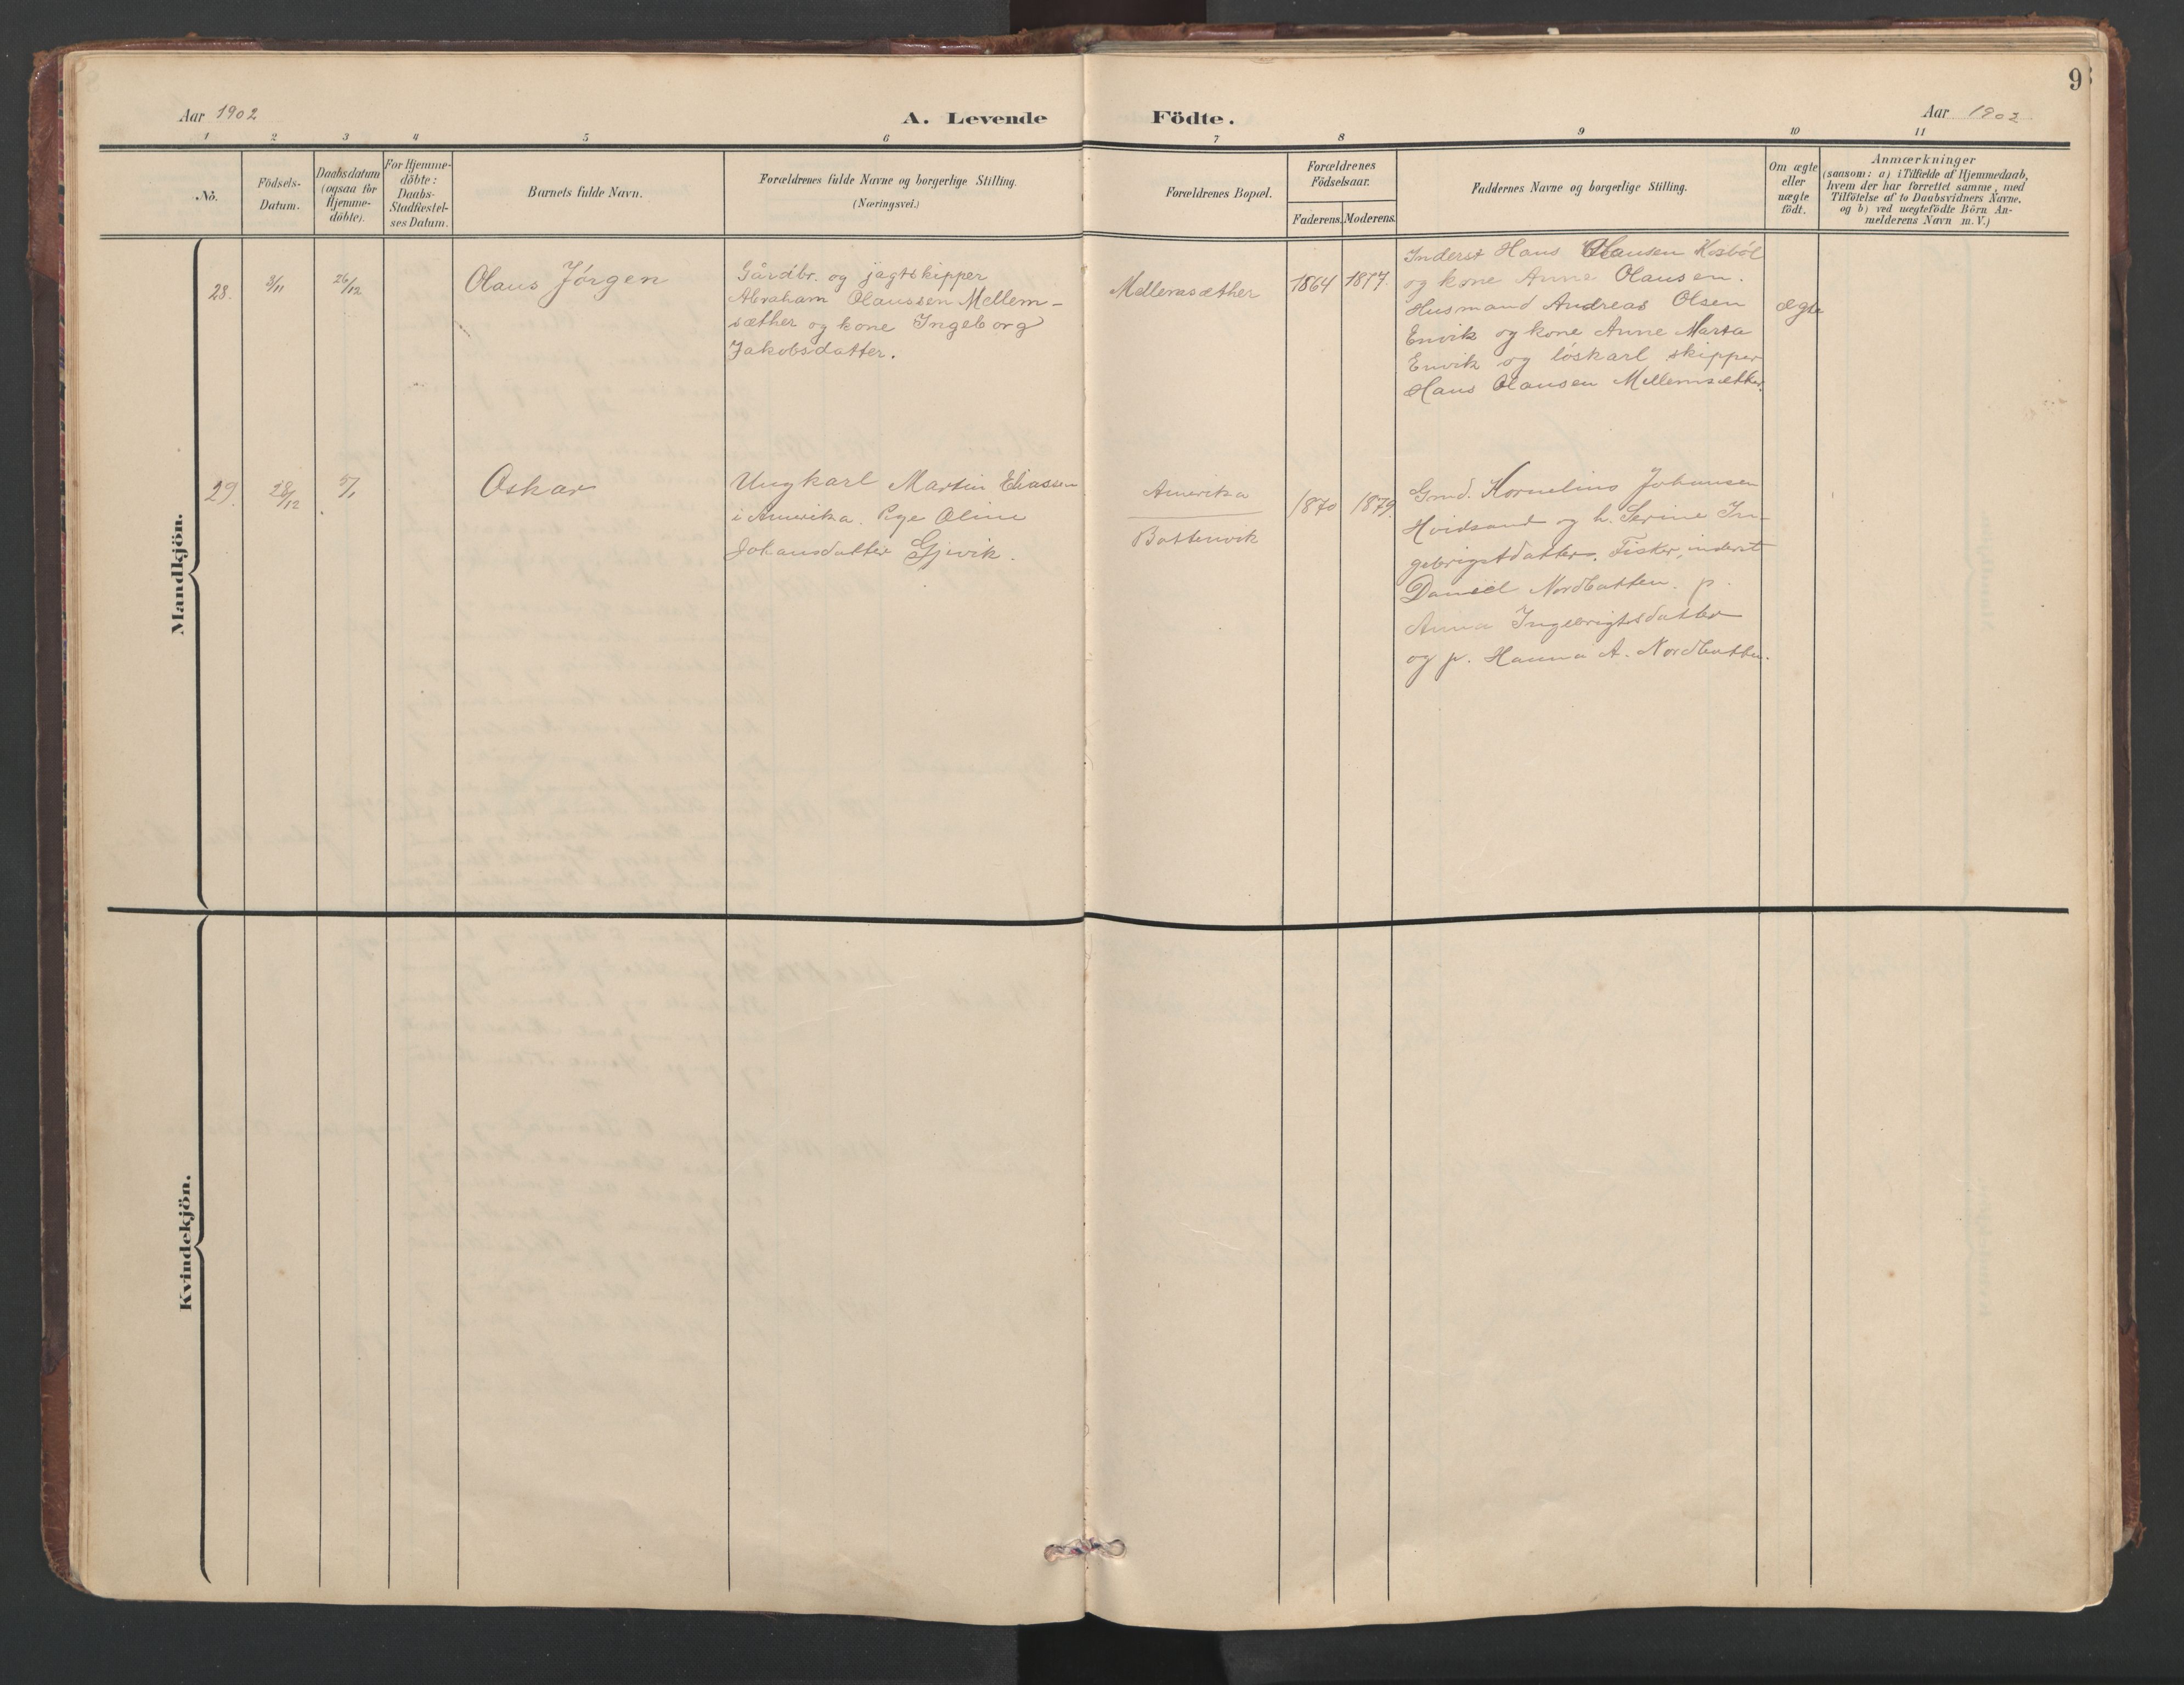 9
Aar 1902
A. Levende Födte.
Aar 1902
1 2 3 4 5 6 7 8 9 10 11
No.
Födsels-
Datum.
Daabsdatum
(ogsaa for
Hjemme-
döbte).
For Hjemme-
döbte:
Daabs-
Stadfæstel-
ses Datum.
Barnets fulde Navn.
Forældrenes fulde Navne og borgerlige Stilling.
(Næringsvei.)
Forældrenes Bopæl.
Forældrenes
Födselsaar.
Faderens. Moderens.
Faddernes Navne og borgerlige Stilling.
Om ægte
eller
uægte
födt.
Anmærkninger
(saasom: a) i Tilfælde af Hjemmedaab,
hvem der har forrettet samme, med
Tilföielse af to Daabsvidners Navne.
og b) ved uægtefödte Börn An-
melderens Navn m. V.)
Mandkjön.
28.
3/11
26/12
Olaus Jørgen
Gårdbr. og jagtskipper
Abraham Olaussen Mellem-
sæther og kone Ingeborg
Jakobsdatter.
Mellemsæther
1864 1877.
Inderst Hans Olausen Kosböl
og kone Anne Olausen.
Husmand Andreas Olsen
Envik og kone Anne Marta
Envik og löskarl skipper
Hans Olausen Mellemsæther.
ægte
29.
28/12
5/1
Oskar
Ungkarl Martin Eliassen
i Amerika. Pige Oline
Johansdatter Gjevik.
Amerika
Battenvik
1870 1879.
Grmd. Kornelius Johansen
Hvidsand og h. Serine In-
gebrigtdatter. Fisker, inderst
Daniel Nordbatten. p.
Anna Ingebrigtsdatter
og p. Hanna A. Nordbatten.
Kvindekjön.